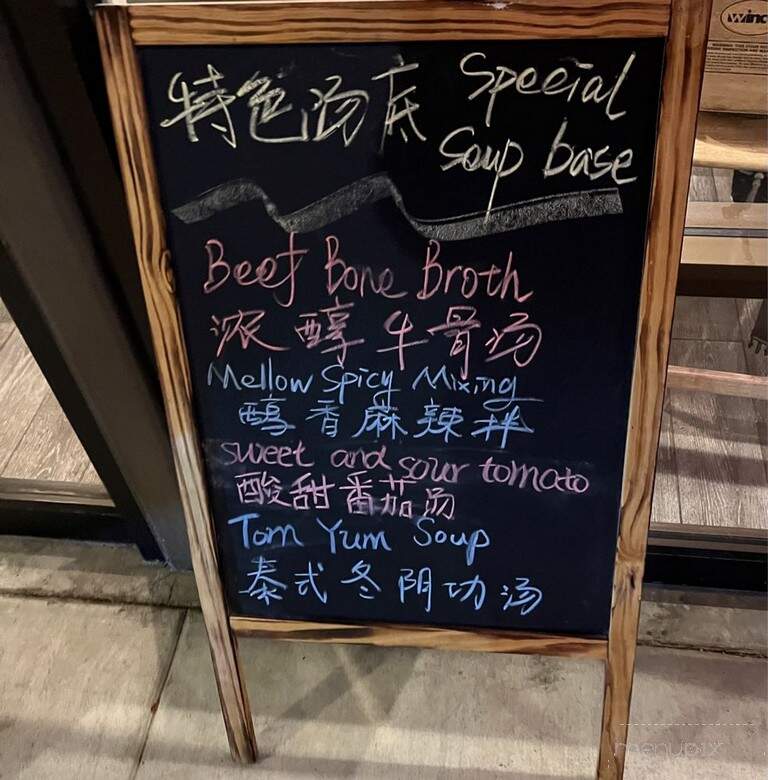 特色汤底 Special
Soup base
Beef Bone Broth
浓醇牛骨汤
Mellow Spicy Mixing
醇香麻辣拌
sweet and sour tomato
酸甜番茄汤
Tom Yum Soup
泰式冬阴功汤
menupix